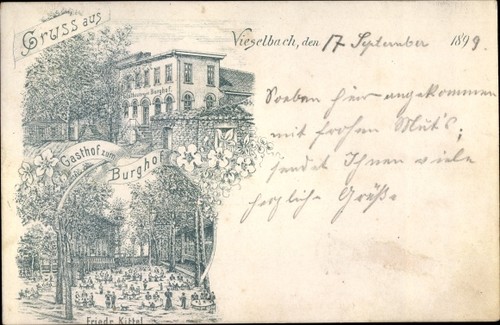 Gruss aus
Vieselbach, den 17 September 1899.
Soeben hier angekommen
mit frohen Mut's,
sendet Ihnen viele
herzliche Grüße
Burghof.
Gasthof zum
Burghof
Friedr. Kittel